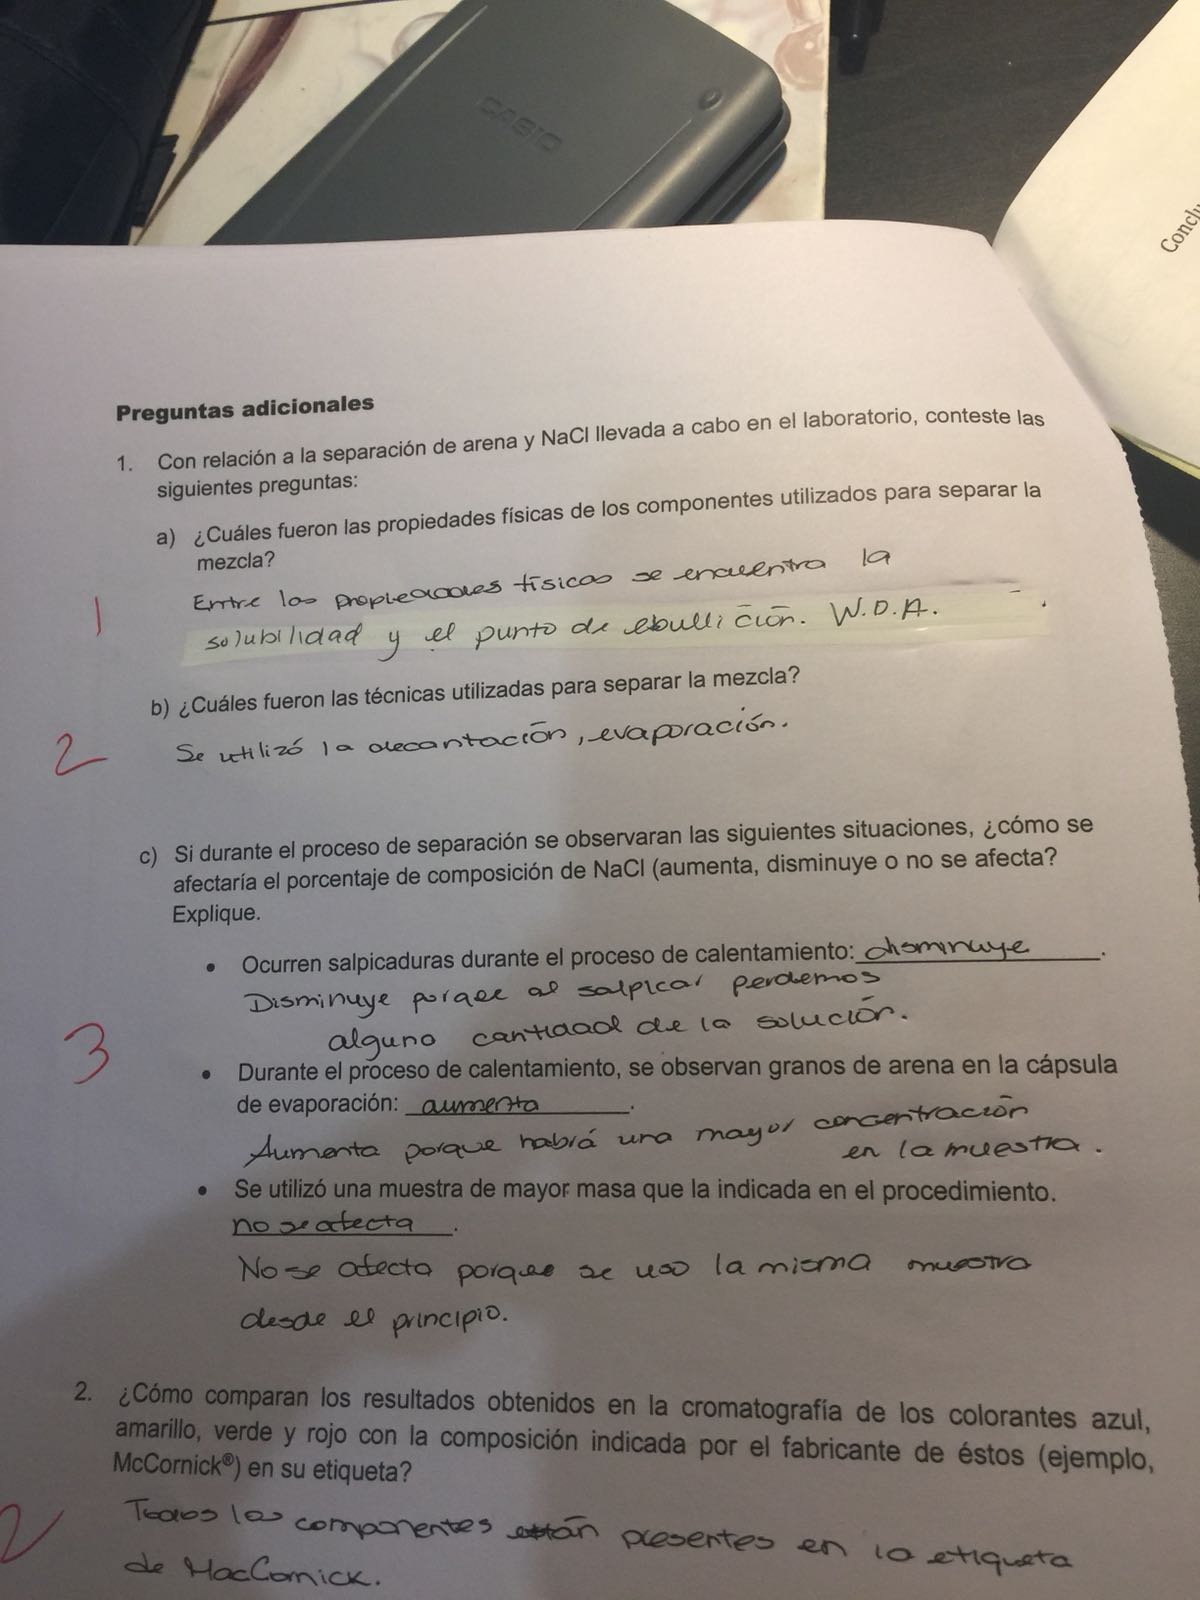 CASIO
Conclu
Preguntas adicionales
1. Con relación a la separación de arena y NaCl llevada a cabo en el laboratorio, conteste las
siguientes preguntas:
a) ¿Cuáles fueron las propiedades físicas de los componentes utilizados para separar la
mezcla?
Entre las propiedades físicas se encuentra la
1
solubilidad y el punto de ebullición. W.D.A.
b) ¿Cuáles fueron las técnicas utilizadas para separar la mezcla?
2
Se utilizó la decantación, evaporación.
c) Si durante el proceso de separación se observaran las siguientes situaciones, ¿cómo se
afectaría el porcentaje de composición de NaCl (aumenta, disminuye o no se afecta?
Explique.
• Ocurren salpicaduras durante el proceso de calentamiento: disminuye.
Disminuye porque al salpicar perdemos
alguno cantidad de la solución.
3
• Durante el proceso de calentamiento, se observan granos de arena en la cápsula
de evaporación: aumenta.
Aumenta porque habrá una mayor concentración
en la muestra.
• Se utilizó una muestra de mayor masa que la indicada en el procedimiento.
no se afecta.
No se afecta porque se uso la misma muestra
desde el principio.
2. ¿Cómo comparan los resultados obtenidos en la cromatografía de los colorantes azul,
amarillo, verde y rojo con la composición indicada por el fabricante de éstos (ejemplo,
McCornick®) en su etiqueta?
2
Todos los componentes están presentes en la etiqueta
de MacCornick.